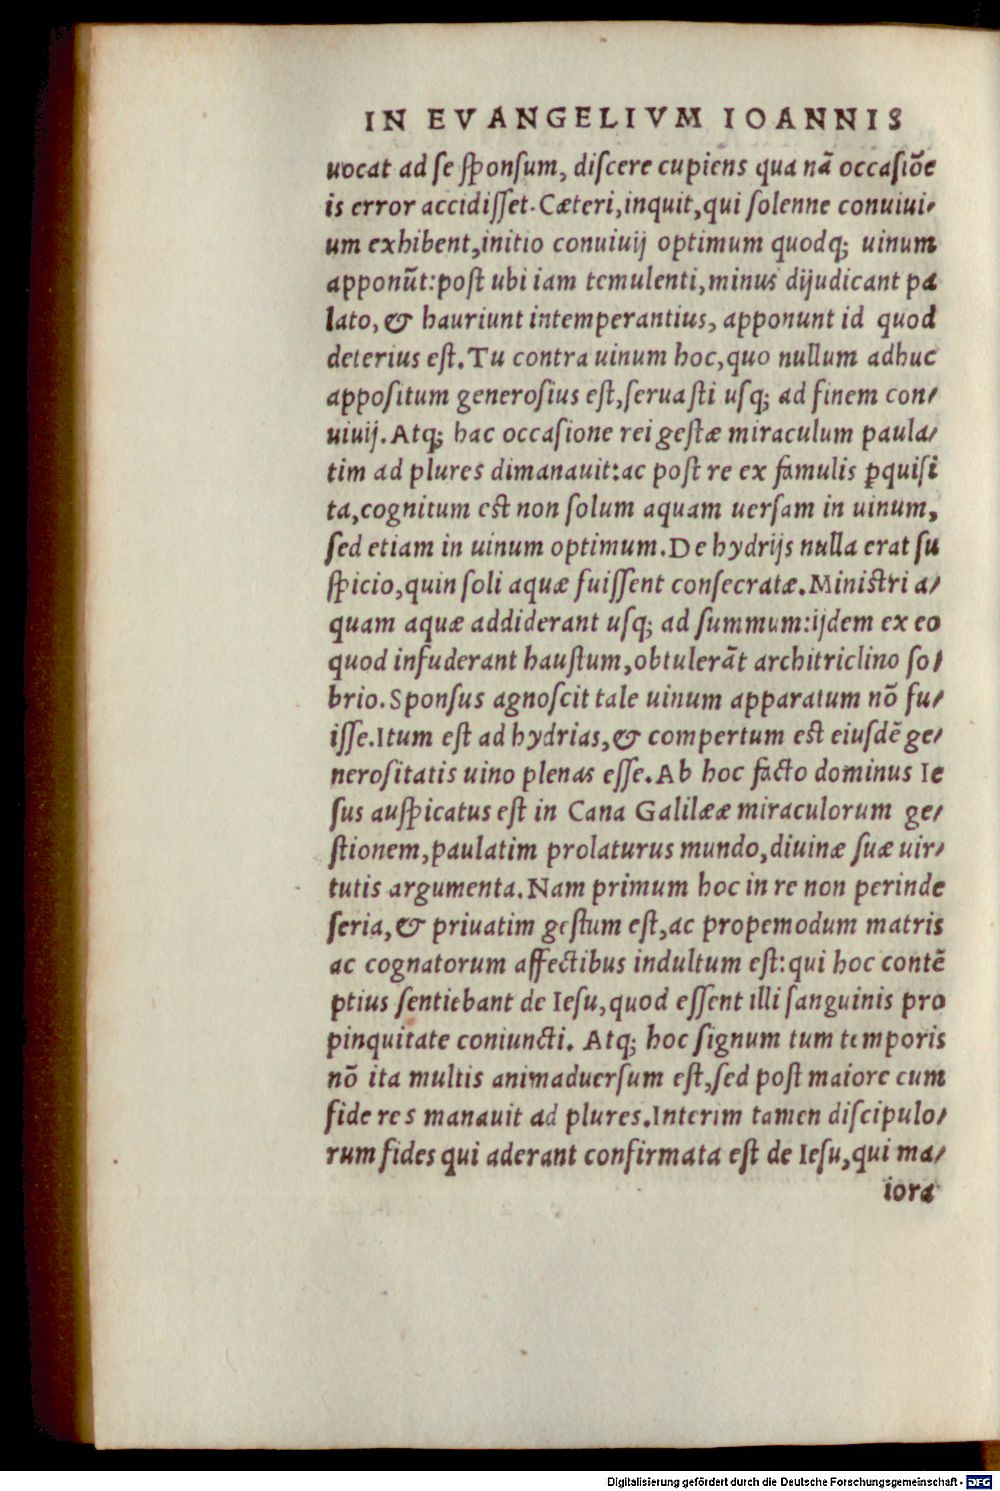 IN EVANGELIVM IOANNIS
uocat ad se sponsum, discere cupiens qua nã occasiõe
is error accidisset. Cæteri, inquit, qui solenne conuiui⸗
um exhibent, initio conuiuij optimum quodq; uinum
apponũt: post ubi iam temulenti, minus dijudicant pa
lato, & hauriunt intemperantius, apponunt id quod
deterius est. Tu contra uinum hoc, quo nullum adhuc
appositum generosius est, seruasti usq; ad finem con⸗
uiuij. Atq; hac occasione rei gestæ miraculum paula⸗
tim ad plures dimanauit: ac post re ex famulis ꝑquisi
ta, cognitum est non solum aquam uersam in uinum,
sed etiam in uinum optimum. De hydrijs nulla erat su
spicio, quin soli aquæ fuissent consecratæ. Ministri a⸗
quam aquæ addiderant usq; ad summum: ijdem ex eo
quod infuderant haustum, obtulerãt architriclino so⸗
brio. Sponsus agnoscit tale uinum apparatum nõ fu⸗
isse. Itum est ad hydrias, & compertum est eiusdẽ ge⸗
nerositatis uino plenas esse. Ab hoc facto dominus Ie
sus auspicatus est in Cana Galilææ miraculorum ge⸗
stionem, paulatim prolaturus mundo, diuinæ suæ uir⸗
tutis argumenta. Nam primum hoc in re non perinde
seria, & priuatim gestum est, ac propemodum matris
ac cognatorum affectibus indultum est: qui hoc contẽ
ptius sentiebant de Iesu, quod essent illi sanguinis pro
pinquitate coniuncti. Atq; hoc signum tum temporis
nõ ita multis animaduersum est, sed post maiore cum
fide res manauit ad plures. Interim tamen discipulo⸗
rum fides qui aderant confirmata est de Iesu, qui ma⸗
iora
Digitalisierung gefördert durch die Deutsche Forschungsgemeinschaft - DFG